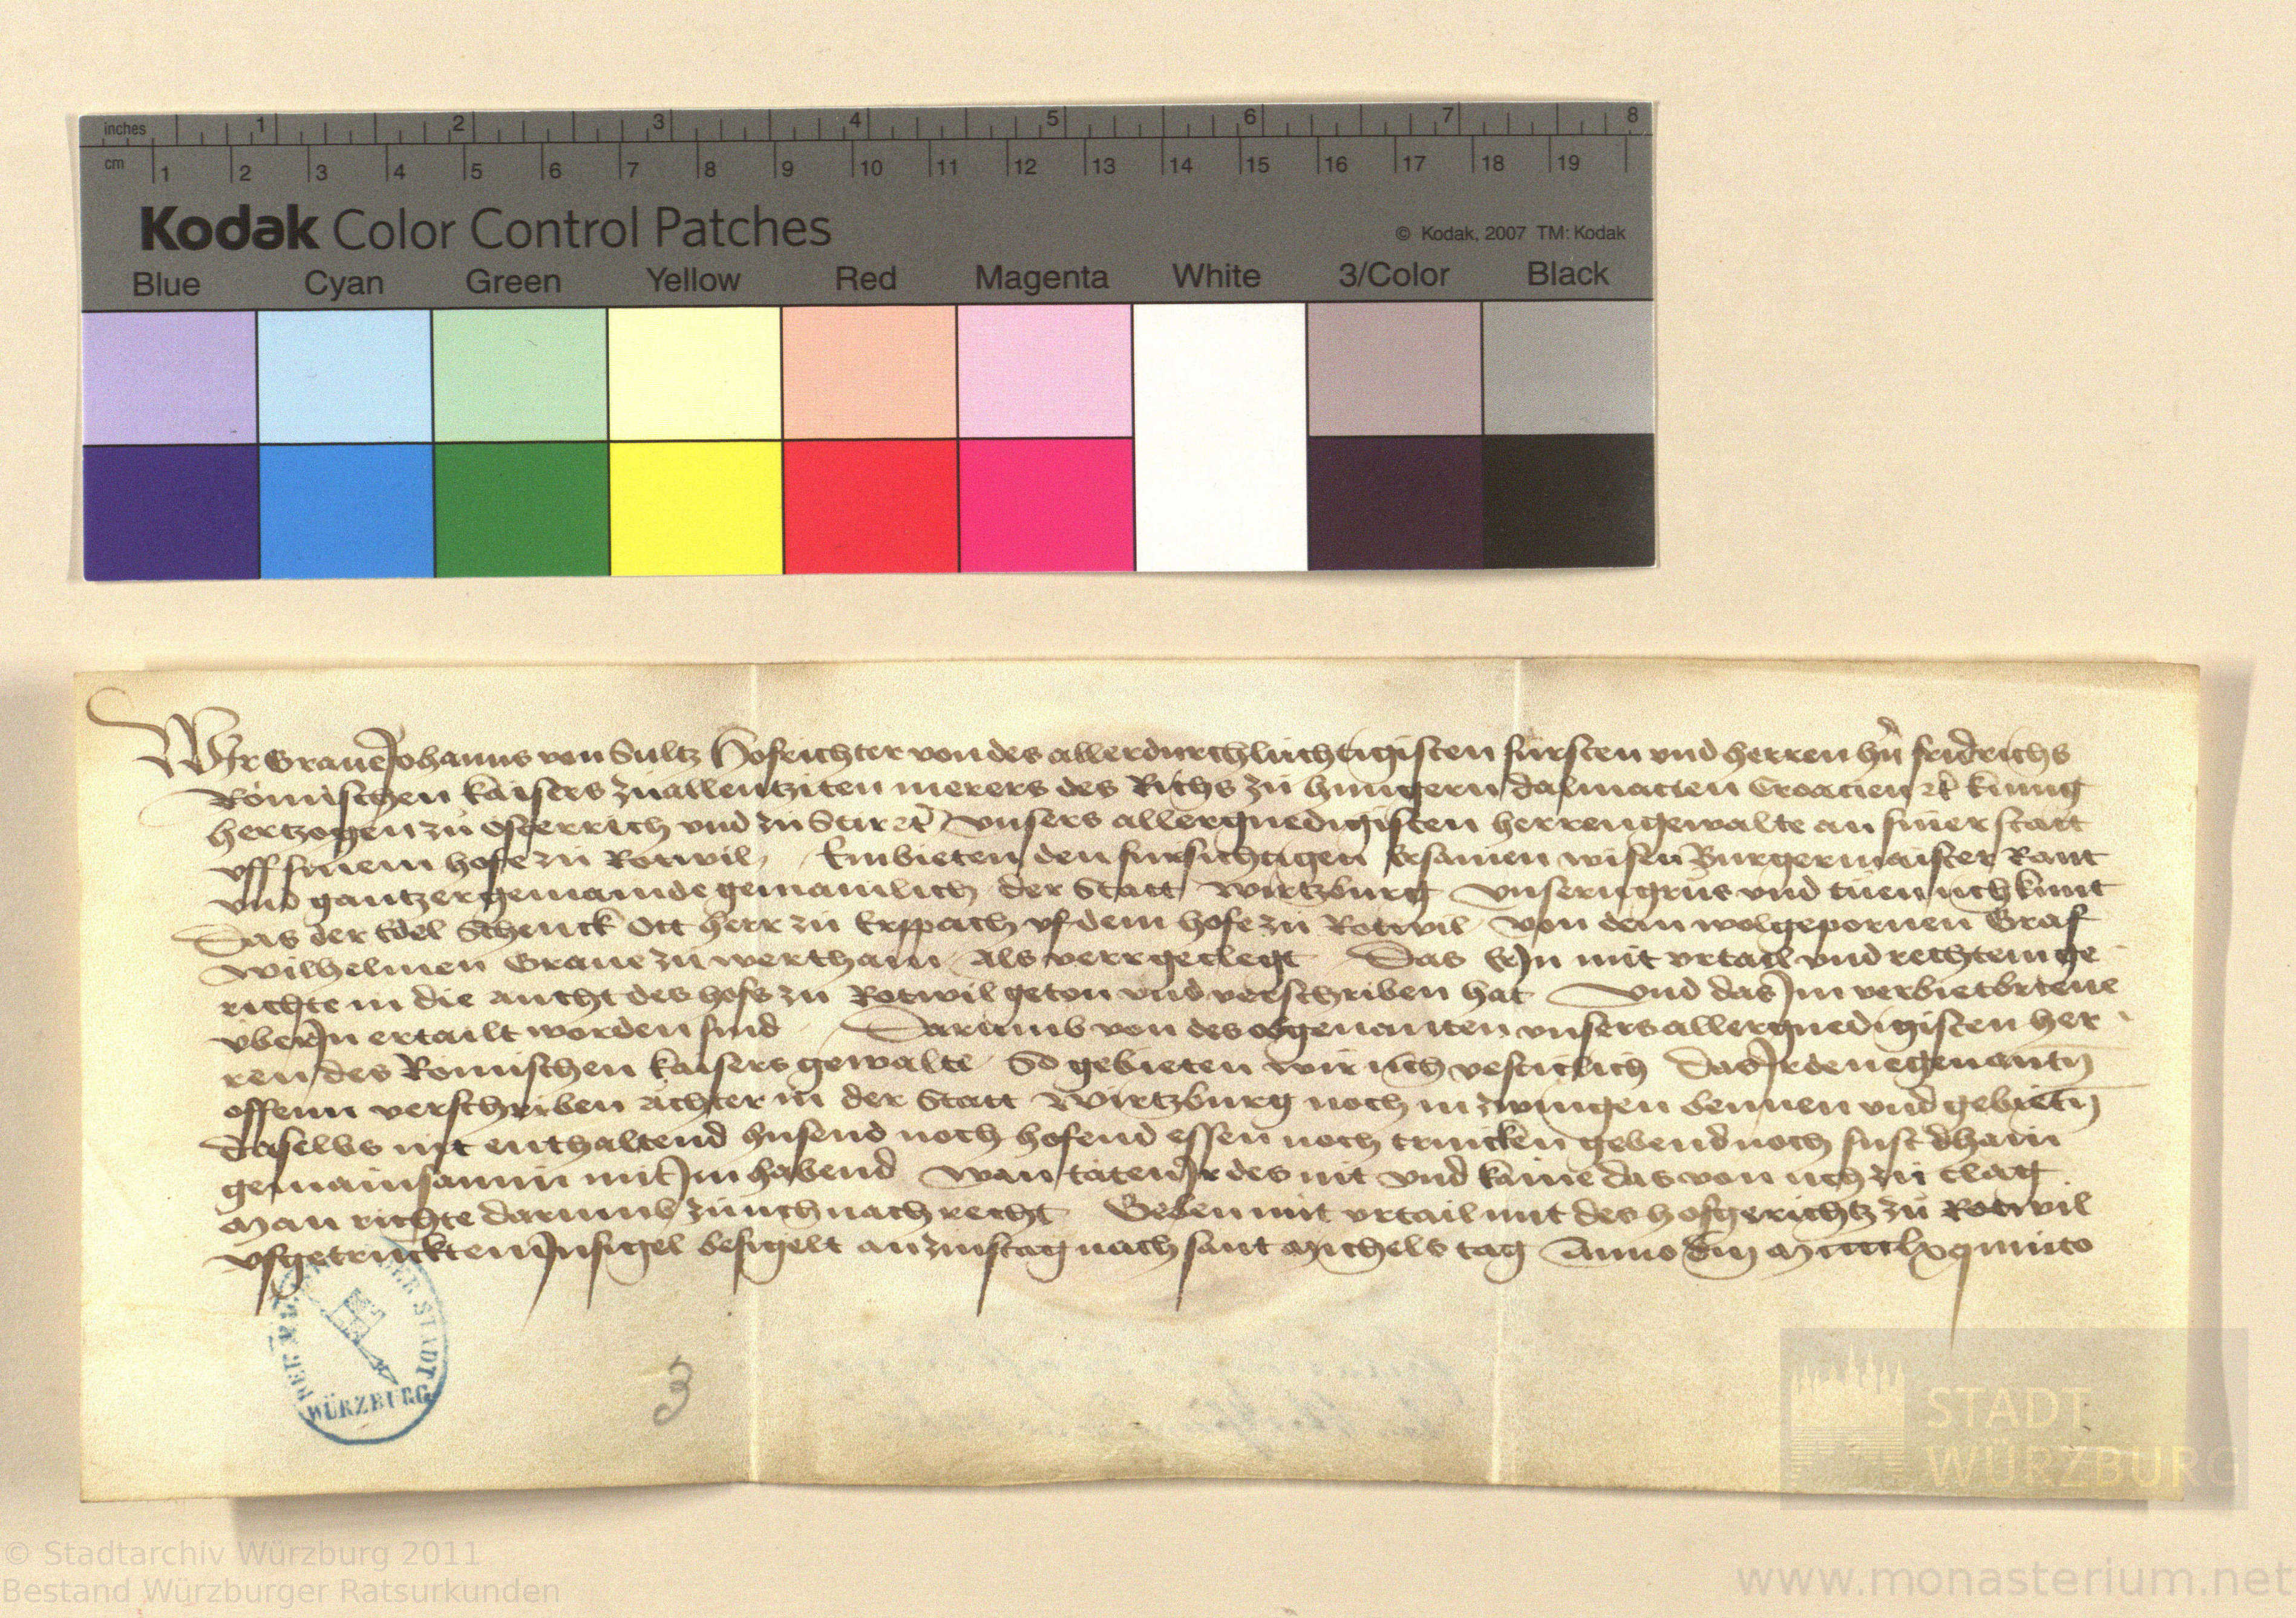 inches 1 2 3 4 5 6 7 8
cm 1 2 3 4 5 6 7 8 9 10 11 12 13 14 15 16 17 18 19
Kodak Color Control Patches
© Kodak, 2007 TM: Kodak
Blue Cyan Green Yellow Red Magenta White 3/Color Black
Wir Graue Johanns von Sultz Hofrichter von des allerdurchluchtigisten fursten vnd herren hn fridrichs
Romischen kaisers zu allentziten merers des Richs zu hungern dalmatien Croacien rc kunig
hertzogen zu Osterrich vnd zu Stir rc vnsers allergnedigisten herren gewalte an siner statt
vff sinem hofe zu Rotwil Embieten den fursichtigen Ersamen wisen Burgermaister Raut
vnd gantzer gemainde gemainlich der Statt Wirtzburg vnsern grus vnd tuen uch kunt
Das der Edel Schenck Ott herr zu Erppach vf dem hofe zu Rotwil von dem wolgepornen Graf
wilhelmen Graue zu werthain als verr geclegt Das Er Jn mit vrtail vnd rechtem ge
richte in die aucht des hofs zu Rotwil geton vnd verschriben hat Vnd das Jm
vber Jn ertailt worden sind Darumb von des obgenanten vnsers allergnedigisten her
ren des Romischen kaisers gewalte So gebieten wir uch vesticlich Das Jr den egenantn
offenn verschriben achter in der Statt Wirtzburg noch in zwingen bennen vnd gebietn
daselbs nit enthaltend husend noch hofend essen noch trincken gebend noch sust dhain
gemainsamin mit Jm habend wan taten Jr des nit vnd kaine das von uch zu clag
Man richte darumb zu uch nach recht Geben mit vrtail mit des hofgerichtz zu Rotwil
vfgetrucktem Jnsigel besigelt an zinstag nach sant Michels tag Anno dm Mcccclxquinto
DER STADT
WÜRZBURG
3
STADT
WÜRZBURG
© Stadtarchiv Würzburg 2011
Bestand Würzburger Ratsurkunden
www.monasterium.net